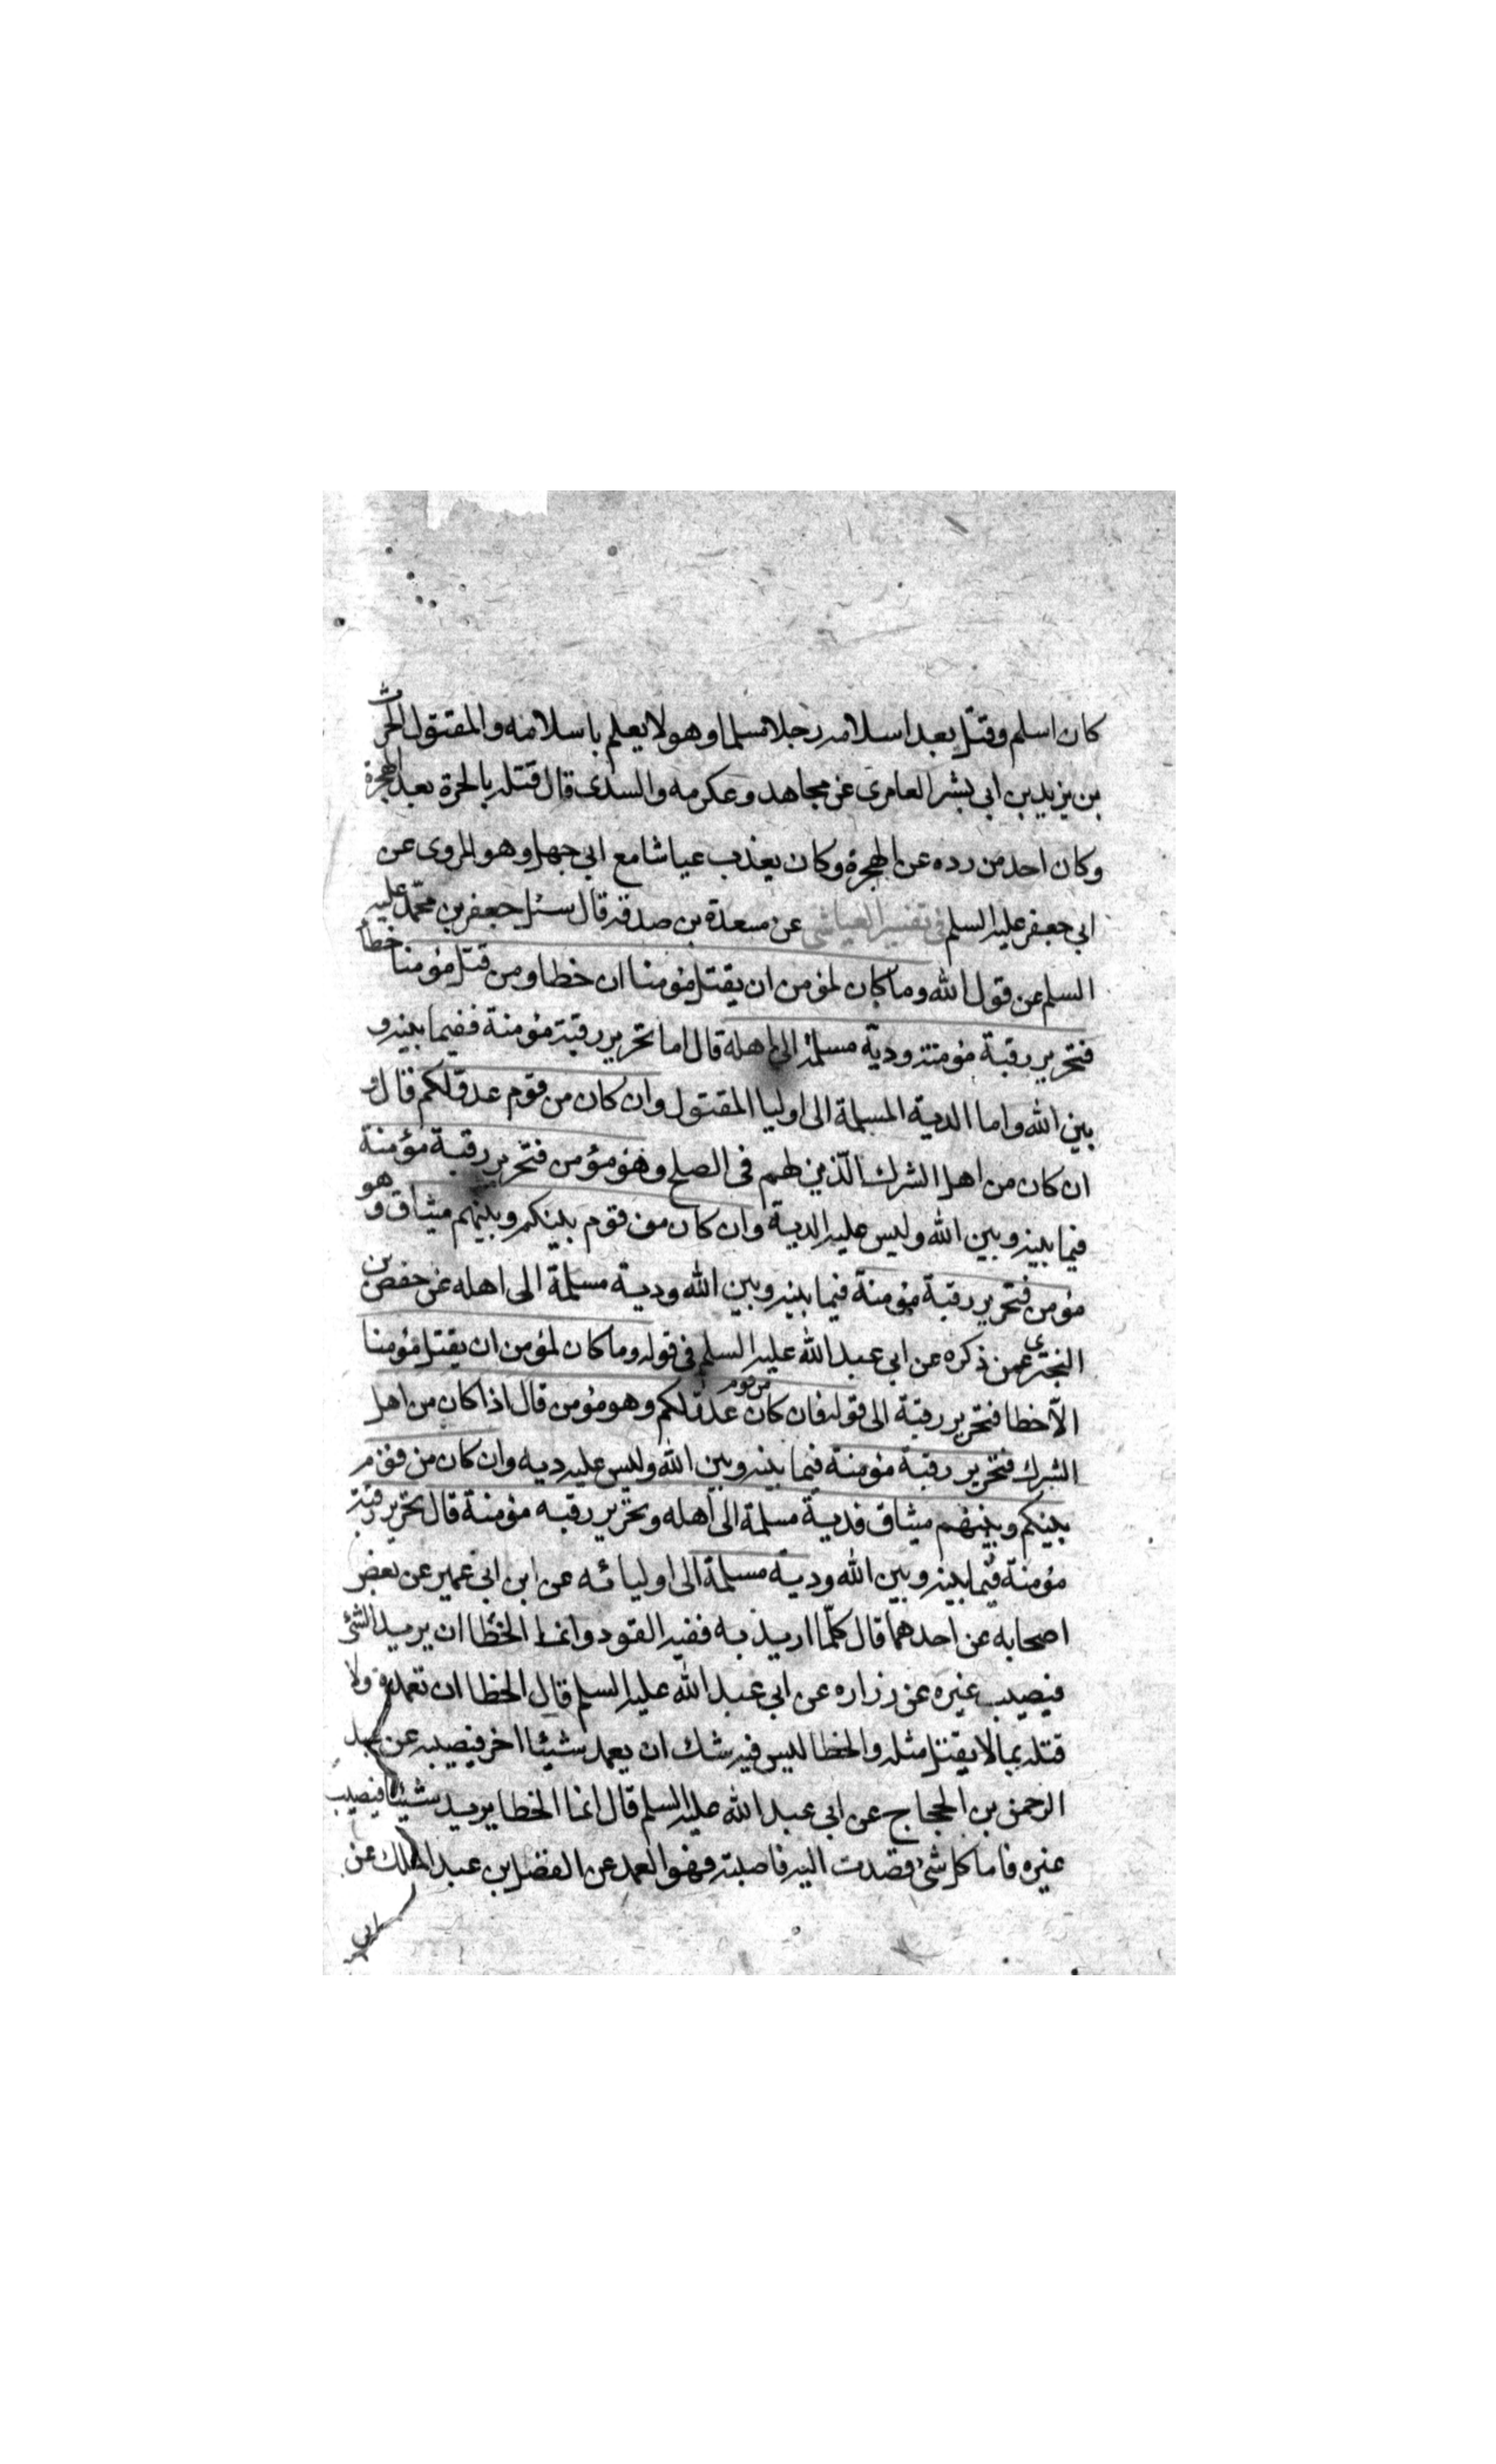 كان اسلم وقتل بعد اسلامه رجلا مسلما وهو لا يعلم باسلامه والمقتول الحرث
بن يزيد بن ابى بشر العامرى عن مجاهد وعكرمه والسدى قال قتله بالحرة بعد الهجرة
وكان احد من رده عن الهجرة وكان يعذب عياشا مع ابى جهل وهو المروى عن
ابى جعفر عليه السلم فى تفسير العياشى عن مسعدة بن صدقه قال سئل جعفر بن محمّد عليه
السلم عن قول الله وما كان لمؤمن ان يقتل مؤمنا ان خطا ومن قتل مؤمنا خطا
فتحرير رقبة مؤمنة ودية مسلمة الى اهله قال اما تحرير رقبة مؤمنة ففيما بينه و
بين الله واما الدية المسلمة الى اوليا المقتول وان كان من قوم عدوّ لكم قال
ان كان من اهل الشرك الّذين لهم فى الصلح وهو مؤمن فتحرير رقبة مؤمنة
فيما بينه وبين الله وليس عليه الدية وان كان من قوم بينكم وبينهم ميثاق و هو
مؤمن فتحرير رقبة مؤمنة فيما بينه وبين الله ودية مسلمة الى اهله عن حفص بن
البخترى عمن ذكره عن ابى عبد الله عليه السلم فى قوله وما كان لمؤمن ان يقتل مؤمنا
الّا خطا فتحرير رقبة الى قوله فان كان من قوم عدوّ لكم وهو مؤمن قال اذا كان من اهل
الشرك فتحرير رقبة مؤمنة فيما بينه وبين الله وليس عليه ديه وان كان من قوم
بينكم وبينهم ميثاق فدية مسلمة الى اهله وتحرير رقبه مؤمنة قال تحرير رقبة
مؤمنة فيما بينه وبين الله ودية مسلمة الى اوليائه عن ابن ابى عمير عن بعض
اصحابه عن احدهما قال كلّما اريد به ففيه القود وانما الخطا ان يريد الشئ
فيصيب غيره عن زراره عن ابى عبد الله عليه السلم قال الخطا ان تعمده ولا
قتله بما لا يقتل مثله والخطا ليس فيه شك ان يعمد شيئا اخر فيصيبه عن عبد
الرحمن بن الحجاج عن ابى عبد الله عليه السلم قال انما الخطا يريد شيئا فيصيب
غيره فاما كل شئ قصدت اليه فاصبته فهو العمد عن الفضل بن عبد الملك عن
ابى